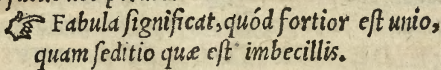 ☞ Fabula ſignificat, quód fortior eſt unio,
quam ſeditio quæ eſt imbecillis.